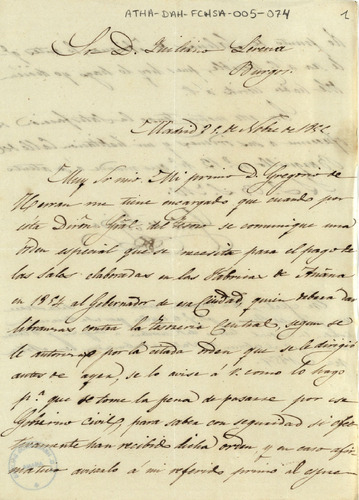 ATHA-DAH-FCHSA-005-074
1
Sr. D. Lirena
Burgos.
Madrid 21, de Nobre de 1852
Muy Sr mio: Mi primo D. Gregorio de
Herran me tiene encargado que cuando por
esta Dirón Gral. del Tesoro se comunique una
orden especial que se necesita para el pago de
las Sales elaboradas en las Fabricas de Añana
en 1852 al Gobernador de esa Ciudad, quien deberá dar
libranzas contra la Tesoreria Central, segun se
le autoriza por la citada orden que se le dirigió
antes de ayer, se lo avise á V. como lo hago
pa. que se tome la pena de pasarse por ese
Gobierno Civil, para saber con seguridad si efec
tivamente han recibido dicha orden, y en caso afir
mativo avisarlo a mi referido primo al